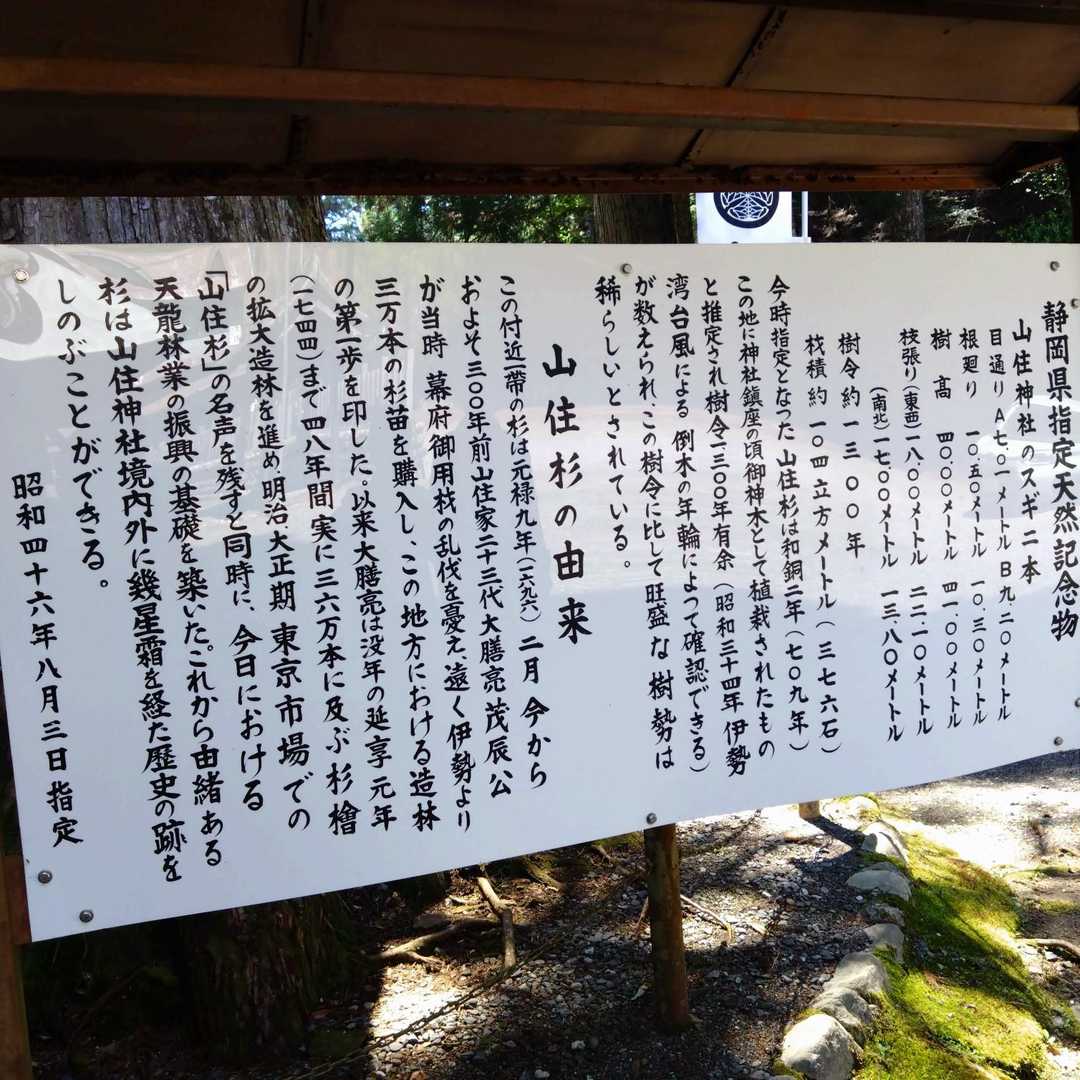 静岡県指定天然記念物
山住神社のスギ二本
目通り A七.〇一メートル B九.二〇メートル
根廻り 一〇.五〇メートル 一〇.三〇メートル
樹高 四〇.〇〇メートル 四一.〇〇メートル
枝張り(東西)一八.〇〇メートル 二二.一〇メートル
(南北)一七.〇〇メートル 一三.八〇メートル
樹令約 一三〇〇年
材積約 一〇四立方メートル(三七六石)
今時指定となつた山住杉は和銅二年(七〇九年)
この地に神社鎮座の頃御神木として植栽されたもの
と推定され樹令一三〇〇年有余(昭和三十四年伊勢
湾台風による倒木の年輪によつて確認できる)
が数えられ、この樹令に比して旺盛な樹勢は
稀らしいとされている。
山住杉の由来
この付近一帯の杉は元禄九年(一六九六)二月今から
およそ三〇〇年前山住家二十三代大膳亮茂辰公
が当時 幕府御用材の乱伐を憂え、遠く伊勢より
三万本の杉苗を購入し、この地方における造林
の第一歩を印した。以来大膳亮は没年の延享元年
(一七四四)まで四八年間実に三六万本に及ぶ杉檜
の拡大造林を進め、明治、大正期 東京市場での
「山住杉」の名声を残すと同時に、今日における
天龍林業の振興の基礎を築いた。これから由緒ある
杉は山住神社境内外に幾星霜を経た歴史の跡を
しのぶことができる。
昭和四十六年八月三日指定